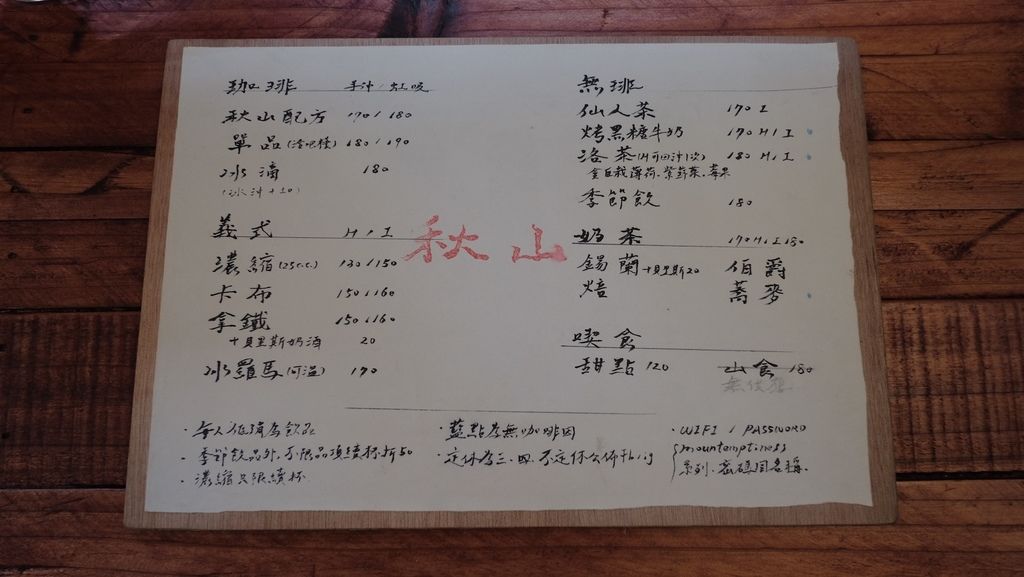 珈琲 手沖/虹吸
秋山配方 170/180
單品(冷吧檯) 180/190
冰滴 180
(冰汁+10)
義式 H/I
濃縮(25c.c.) 130/150
卡布 150/160
拿鐵 150/160
+貝里斯奶酒 20
冰羅馬(可溫) 170
秋山
無琲
仙人茶 170 I
烤黑糖牛奶 170 H/I
洛茶(H可回沖1次) 180 H/I
含自栽薄荷.紫蘇葉.
季節飲 180
奶茶 170 H/I 180
錫蘭+貝里斯20 伯爵
焙 蕎麥
喫食
甜點 120 山食 180
無供應
·每人低消為飲品
·季節飲品外.不限品項續杯折50
·濃縮只限續杯
·藍點為無咖啡因
·定休為三.四.不定休公佈於ig
·WIFI / PASSWORD
mountamptiness
系列.密碼同名稱.